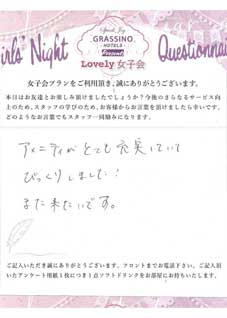 Speak Joy
GRASSINO
HOTELS
Present
Girls' Night
Questionnai
Lovely 女子会
女子会プランをご利用頂き、誠にありがとうございます。
本日はお友達とお楽しみ頂けましたでしょうか？今後のさらなるサービス向
上のため、スタッフの学びのため、お客様からお言葉を頂けましたら幸いです。
どのようなお言葉でもスタッフ一同励みになります。
アメニティがとても充実していて
びっくりしました！
また来たいです。
ご記入いただき誠にありがとうございます。フロントまでお電話下さい。ご記入頂
いたアンケート用紙1枚につき1点ソフトドリンクをお部屋にお持ちいたします。